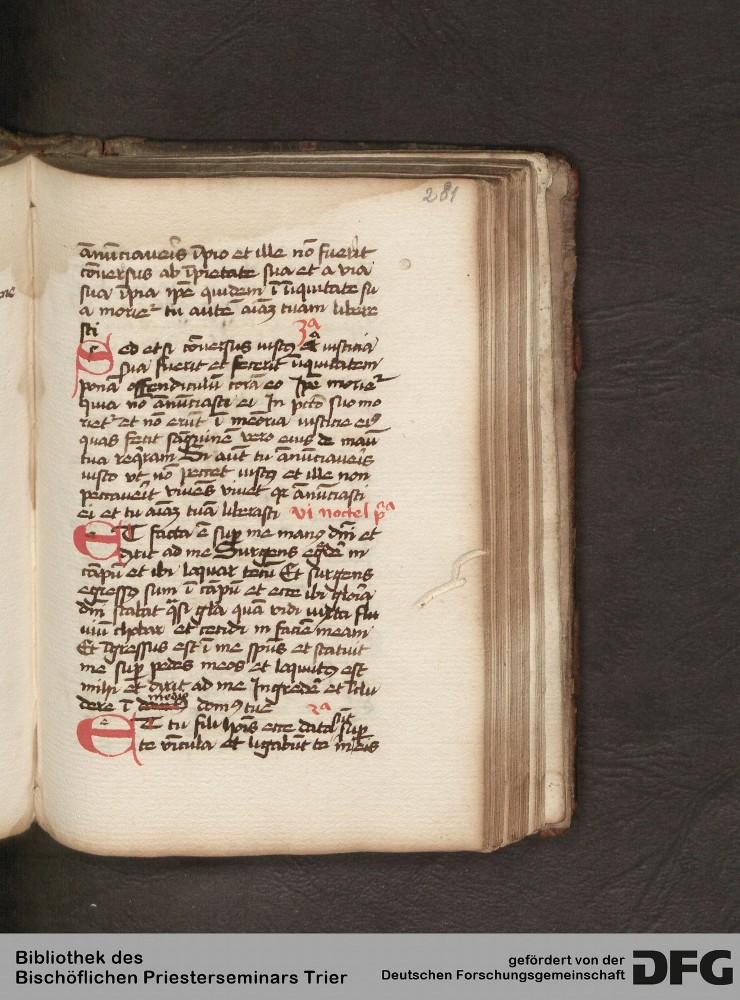 281
ānūciaveris īpio et ille nō fuerit
cōversus ab īpietate sua et a via
sua īpia ipe quidem ī iniquitate su
a morietr tu autē aīaz tuam libera
sti
3a
Sed et si cōversus iustꝯ a iusticia
sua fuerit et fecerit iniquitatem
ponā offendiculū corā eo Ipe morietr
quia nō anūciasti ei In pctō suo mo
rietr et nō erūt ī memoria iusticie eiꝯ
quas fecit sāguinē vero eius de manū
tua reqram Si aūt tu anūciaveris
iusto vt nō peccet iustꝯ et ille non
peccaverit vivēs vivet qr anūciasti
ei et tu aīaz tuā liberasti vi noctel pa
ET facta ē sup me manꝯ dnī et
dixit ad me Surgens egrede in
cāpū et ibi loquar tecū Et surgens
egressꝯ sum ī cāpū et ecce ibi gloria
dnī stabat qsi gla quā vidi iuxta flu
uiū chobar et cecidi in faciē meam
Et īgressus est ī me spūs et statuit
me sup pedes meos et loquutꝯ est
mihi et dixit ad me Ingrede et clu
dere ī medio domꝯ tue
2a
ET tu fili hoīs ecce data sūt sup
te vīcula et ligabūt te in eis
Bibliothek des
Bischöflichen Priesterseminars Trier
gefördert von der
Deutschen Forschungsgemeinschaft DFG